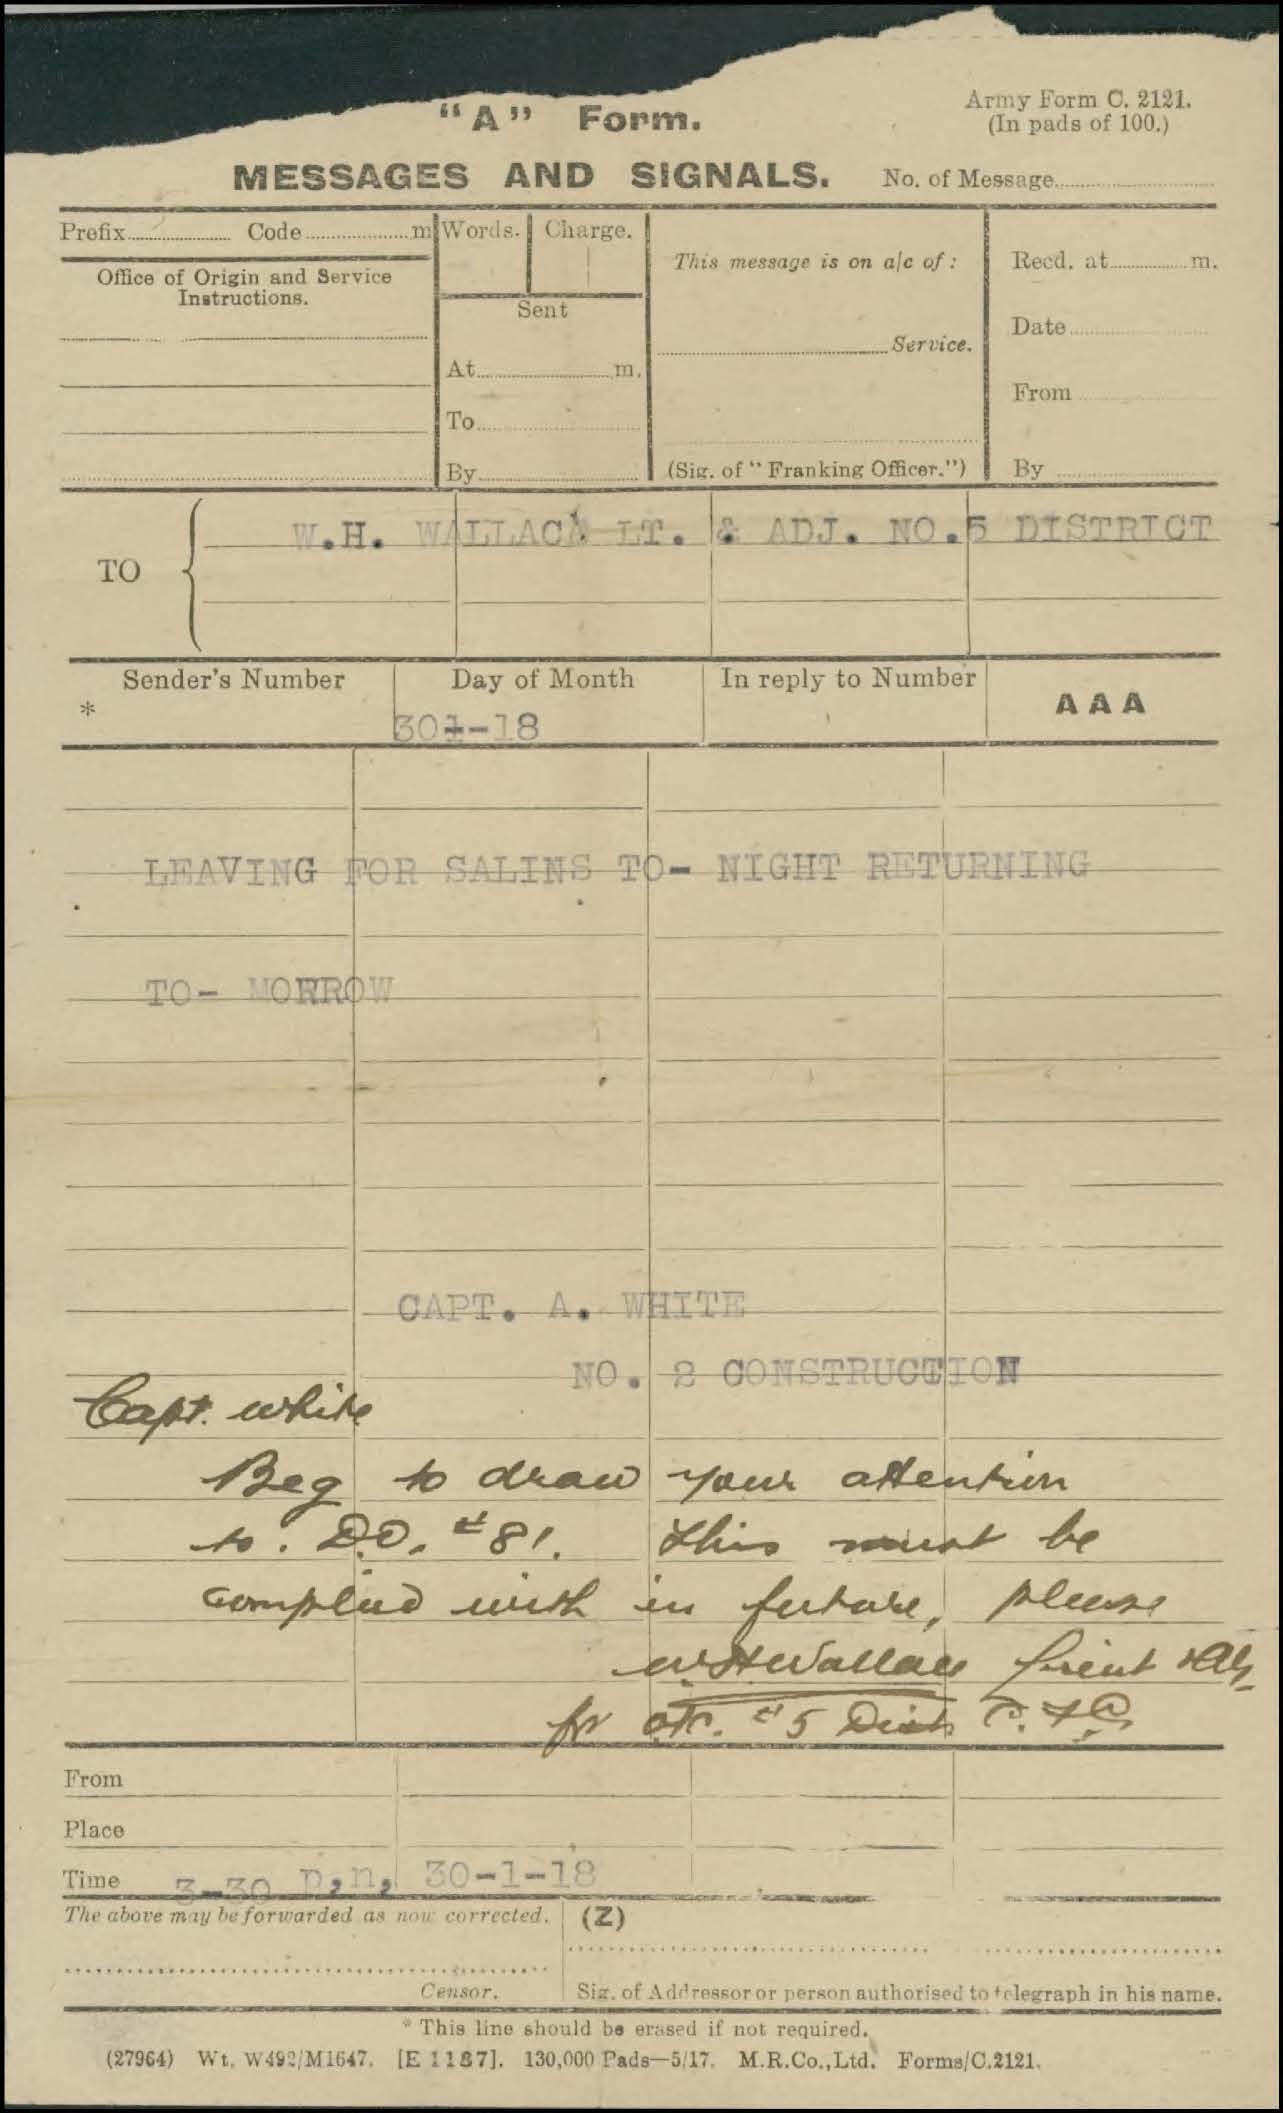 "A" Form.
Army Form C. 2121.
(In pads of 100.)
MESSAGES AND SIGNALS.
No. of Message
Prefix Code m
Words.
Charge.
This message is on a/c of:
Recd. at m.
Office of Origin and Service
Instructions.
Sent
Date
Service.
At m.
From
To
By
(Sig. of "Franking Officer.")
By
TO
W.H. WALLACE LT. & ADJ. NO.5 DISTRICT
Sender's Number
Day of Month
In reply to Number
AAA
*
301-18
LEAVING FOR SALINS TO- NIGHT RETURNING
TO- MORROW
CAPT. A. WHITE
NO. 2 CONSTRUCTION
Capt. White
Beg to draw your attention
to. D.O. #81. This must be
complied with in future, please
WHWallace Lieut &Adj.
for O/C. #5 Dist. C.F.C.
From
Place
Time 3-30 p,n, 30-1-18
The above may be forwarded as now corrected.
(Z)
Censor.
Sig. of Addressor or person authorised to telegraph in his name.
* This line should be erased if not required.
(27964) Wt. W492/M1647. [E 1187]. 130,000 Pads—5/17. M.R.Co.,Ltd. Forms/C.2121.